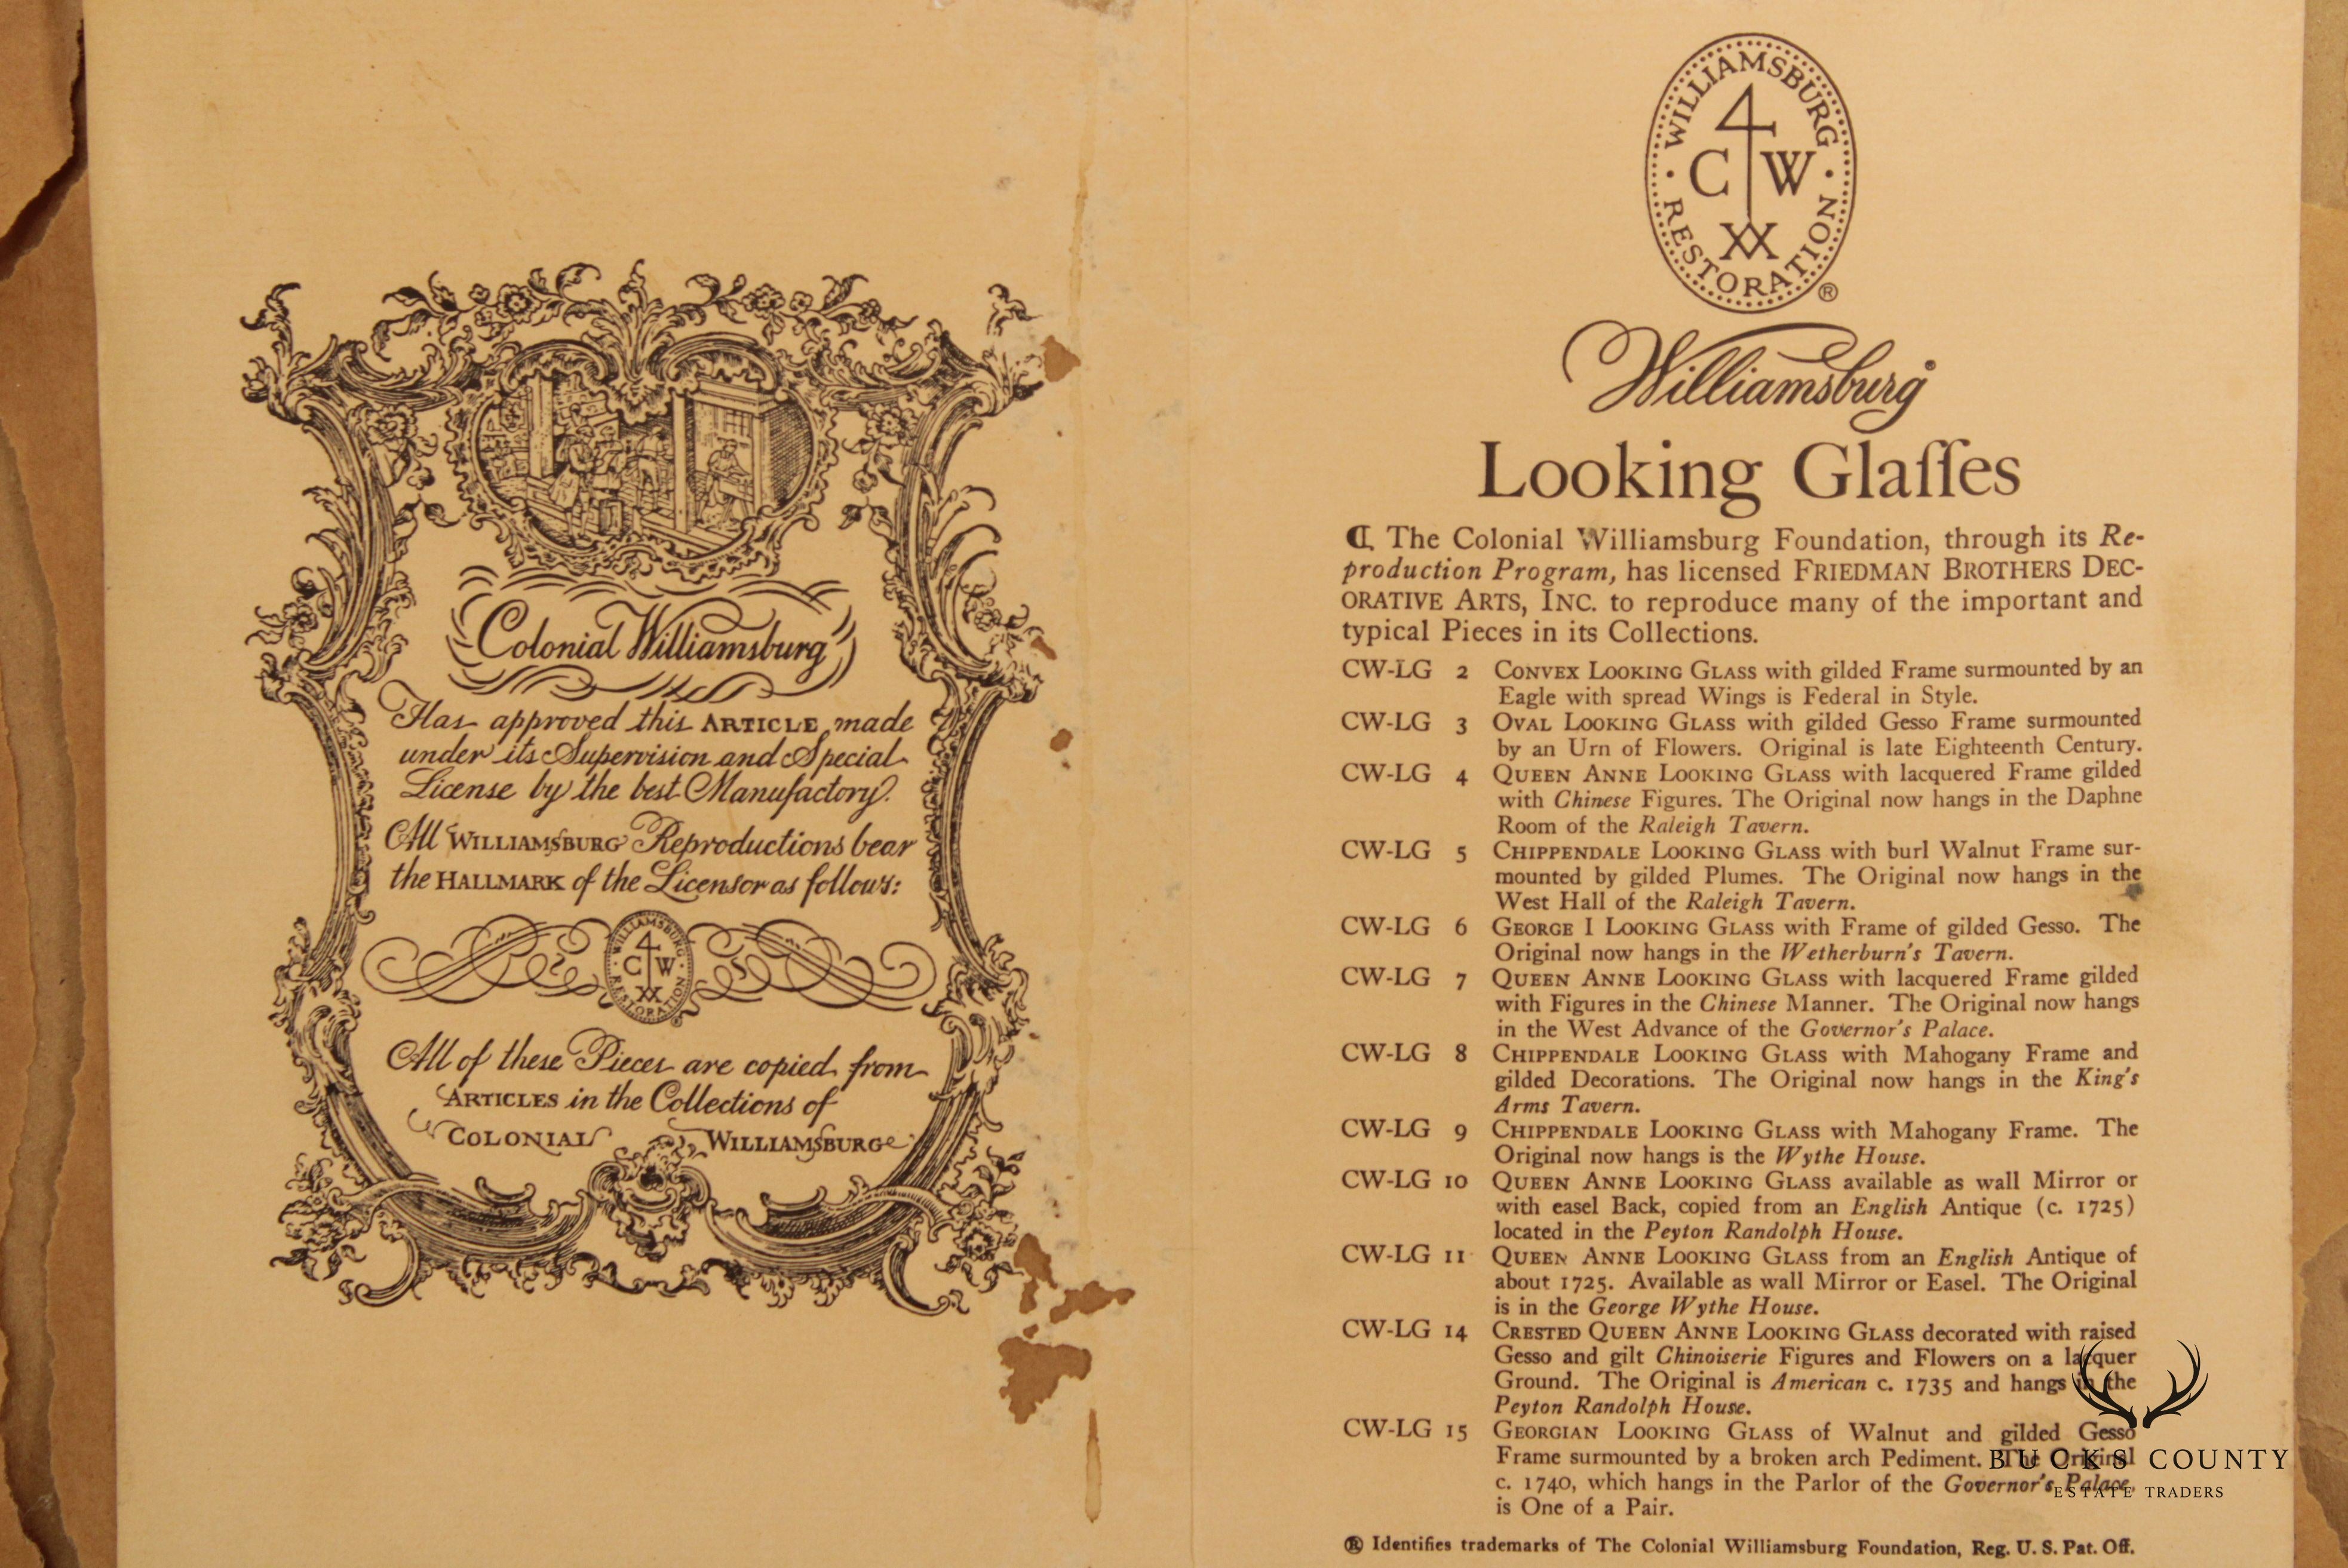 Colonial Williamsburg
Has approved this ARTICLE, made
under its Supervision and Special
License by the best Manufactory.
All WILLIAMSBURG Reproductions bear
the HALLMARK of the Licensor as follows:
WILLIAMSBURG
CW
RESTORATION
All of these Pieces are copied from
ARTICLES in the Collections of
COLONIAL WILLIAMSBURG
WILLIAMSBURG
C W
RESTORATION
®
Williamsburg
Looking Glaſſes
The Colonial Williamsburg Foundation, through its Re-
production Program, has licensed FRIEDMAN BROTHERS DEC-
ORATIVE ARTS, INC. to reproduce many of the important and
typical Pieces in its Collections.
CW-LG 2 CONVEX LOOKING GLASS with gilded Frame surmounted by an
Eagle with spread Wings is Federal in Style.
CW-LG 3 OVAL LOOKING GLASS with gilded Gesso Frame surmounted
by an Urn of Flowers. Original is late Eighteenth Century.
CW-LG 4 QUEEN ANNE LOOKING GLASS with lacquered Frame gilded
with Chinese Figures. The Original now hangs in the Daphne
Room of the Raleigh Tavern.
CW-LG 5 CHIPPENDALE LOOKING GLASS with burl Walnut Frame sur-
mounted by gilded Plumes. The Original now hangs in the
West Hall of the Raleigh Tavern.
CW-LG 6 GEORGE I LOOKING GLASS with Frame of gilded Gesso. The
Original now hangs in the Wetherburn's Tavern.
CW-LG 7 QUEEN ANNE LOOKING GLASS with lacquered Frame gilded
with Figures in the Chinese Manner. The Original now hangs
in the West Advance of the Governor's Palace.
CW-LG 8 CHIPPENDALE LOOKING GLASS with Mahogany Frame and
gilded Decorations. The Original now hangs in the King's
Arms Tavern.
CW-LG 9 CHIPPENDALE LOOKING GLASS with Mahogany Frame. The
Original now hangs is the Wythe House.
CW-LG 10 QUEEN ANNE LOOKING GLASS available as wall Mirror or
with easel Back, copied from an English Antique (c. 1725)
located in the Peyton Randolph House.
CW-LG 11 QUEEN ANNE LOOKING GLASS from an English Antique of
about 1725. Available as wall Mirror or Easel. The Original
is in the George Wythe House.
CW-LG 14 CRESTED QUEEN ANNE LOOKING GLASS decorated with raised
Gesso and gilt Chinoiserie Figures and Flowers on a lacquer
Ground. The Original is American c. 1735 and hangs in the
Peyton Randolph House.
CW-LG 15 GEORGIAN LOOKING GLASS of Walnut and gilded Gesso
Frame surmounted by a broken arch Pediment. The Original
c. 1740, which hangs in the Parlor of the Governor's Palace,
is One of a Pair.
® Identifies trademarks of The Colonial Williamsburg Foundation, Reg. U. S. Pat. Off.
BUCKS COUNTY
ESTATE TRADERS